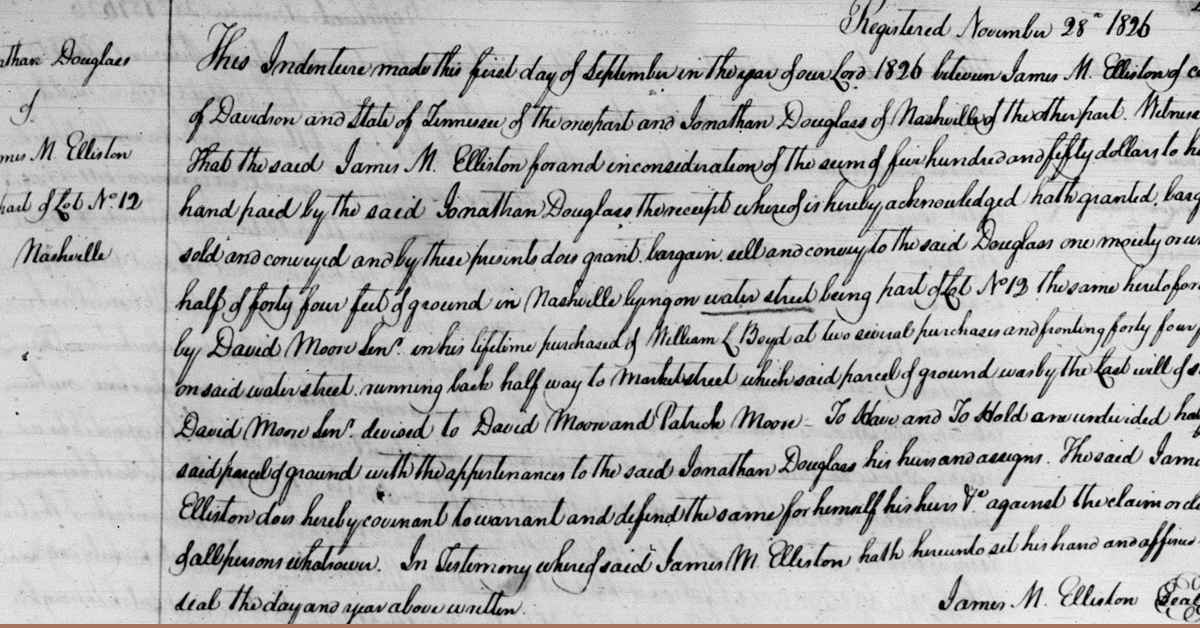 Registered November 28th 1826
Jonathan Douglass
of
James M Elliston
part of Lot No 12
Nashville
This Indenture made this first day of September in the year of our Lord 1826 between James M. Elliston of co
of Davidson and State of Tennessee of the one part and Jonathan Douglass of Nashville of the other part. Witness
That the said James M. Elliston for and in consideration of the sum of five hundred and fifty dollars to h
hand paid by the said Jonathan Douglass the receipt whereof is hereby acknowledged hath granted, barg
sold and conveyed and by these presents does grant, bargain, sell and convey to the said Douglass one moiety or
half of forty four feet of ground in Nashville lying on water street being part of Lot No 12 the same heretofor
by David Moore Senr. in his lifetime purchased of William L Boyd at two several purchases and fronting forty four
on said water street, running back half way to Market street which said parcel of ground was by the Last will of s
David Moore Senr. devised to David Moore and Patrick Moore - To Have and To Hold an undivided hal
said parcel of ground with the appertenances to the said Jonathan Douglass his heirs and assigns. The said Jam
Elliston does hereby covenant to warrant and defend the same for himself his heirs &c against the claim or d
of all persons whatsover. In Testimony whereof said James M. Elliston hath hereunto set his hand and affixed
seal the day and year above written.
James M. Elliston Seal